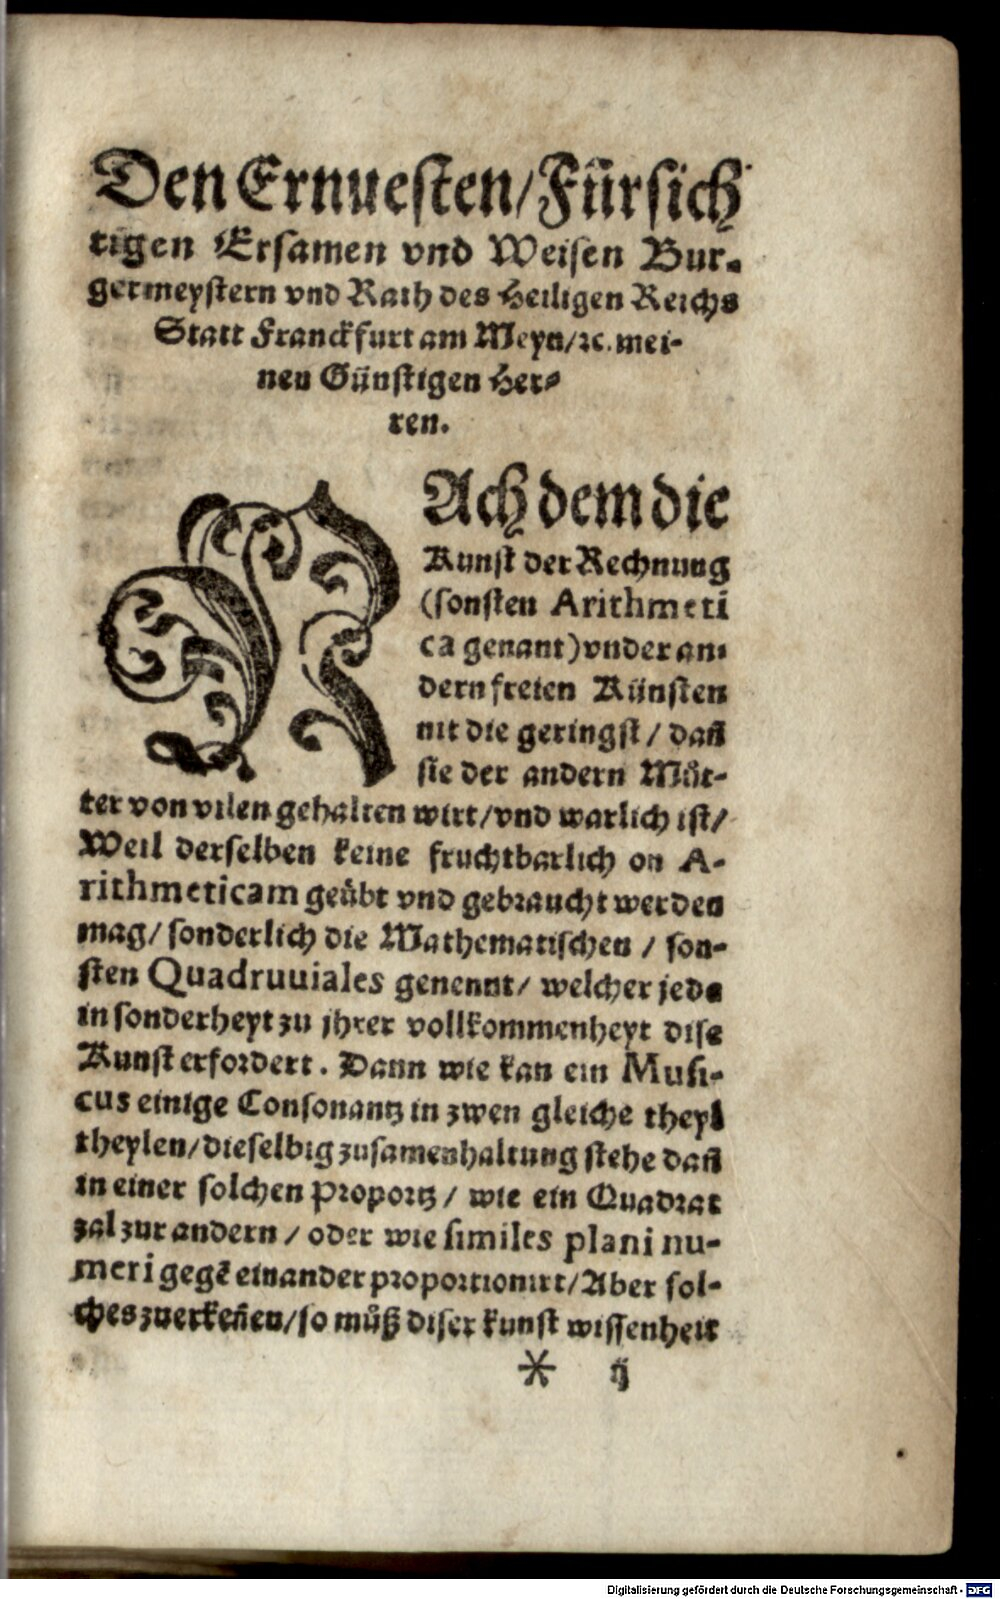 Den Ernuesten/Fürsich
tigen Ersamen vnd Weisen Bur-
germeystern vnd Rath des Heiligen Reichs
Statt Franckfurt am Meyn/ꝛc. mei-
nen Günstigen Her-
ren.
NAch dem die
Kunst der Rechnung
(sonsten Arithmeti
ca genant) vnder an-
dern freien Künsten
nit die geringst / dañ
sie der andern Můt-
ter von vilen gehalten wirt/vnd warlich ist/
Weil derselben keine fruchtbarlich on A-
rithmeticam geübt vnd gebraucht werden
mag/ sonderlich die Mathematischen / son-
sten Quadruuiales genennt/ welcher jede
in sonderheyt zu jhrer vollkommenheyt dise
Kunst erfordert. Dann wie kan ein Musi-
cus einige Consonantz in zwen gleiche theyl
theylen/dieselbig zusamenhaltung stehe dañ
in einer solchen proportz / wie ein Quadrat
zal zur andern / oder wie similes plani nu-
meri gegē einander proportionirt/Aber sol-
ches zuerkeñen/so můß diser kunst wissenheit
* ij
Digitalisierung gefördert durch die Deutsche Forschungsgemeinschaft - DFG